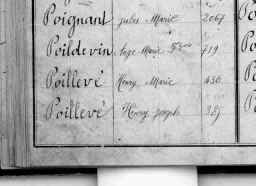 Poignant Jules Marie 2067
Poildevin Marie 719
Poillevé Henry Marie 430
Poillevé Henry Joseph